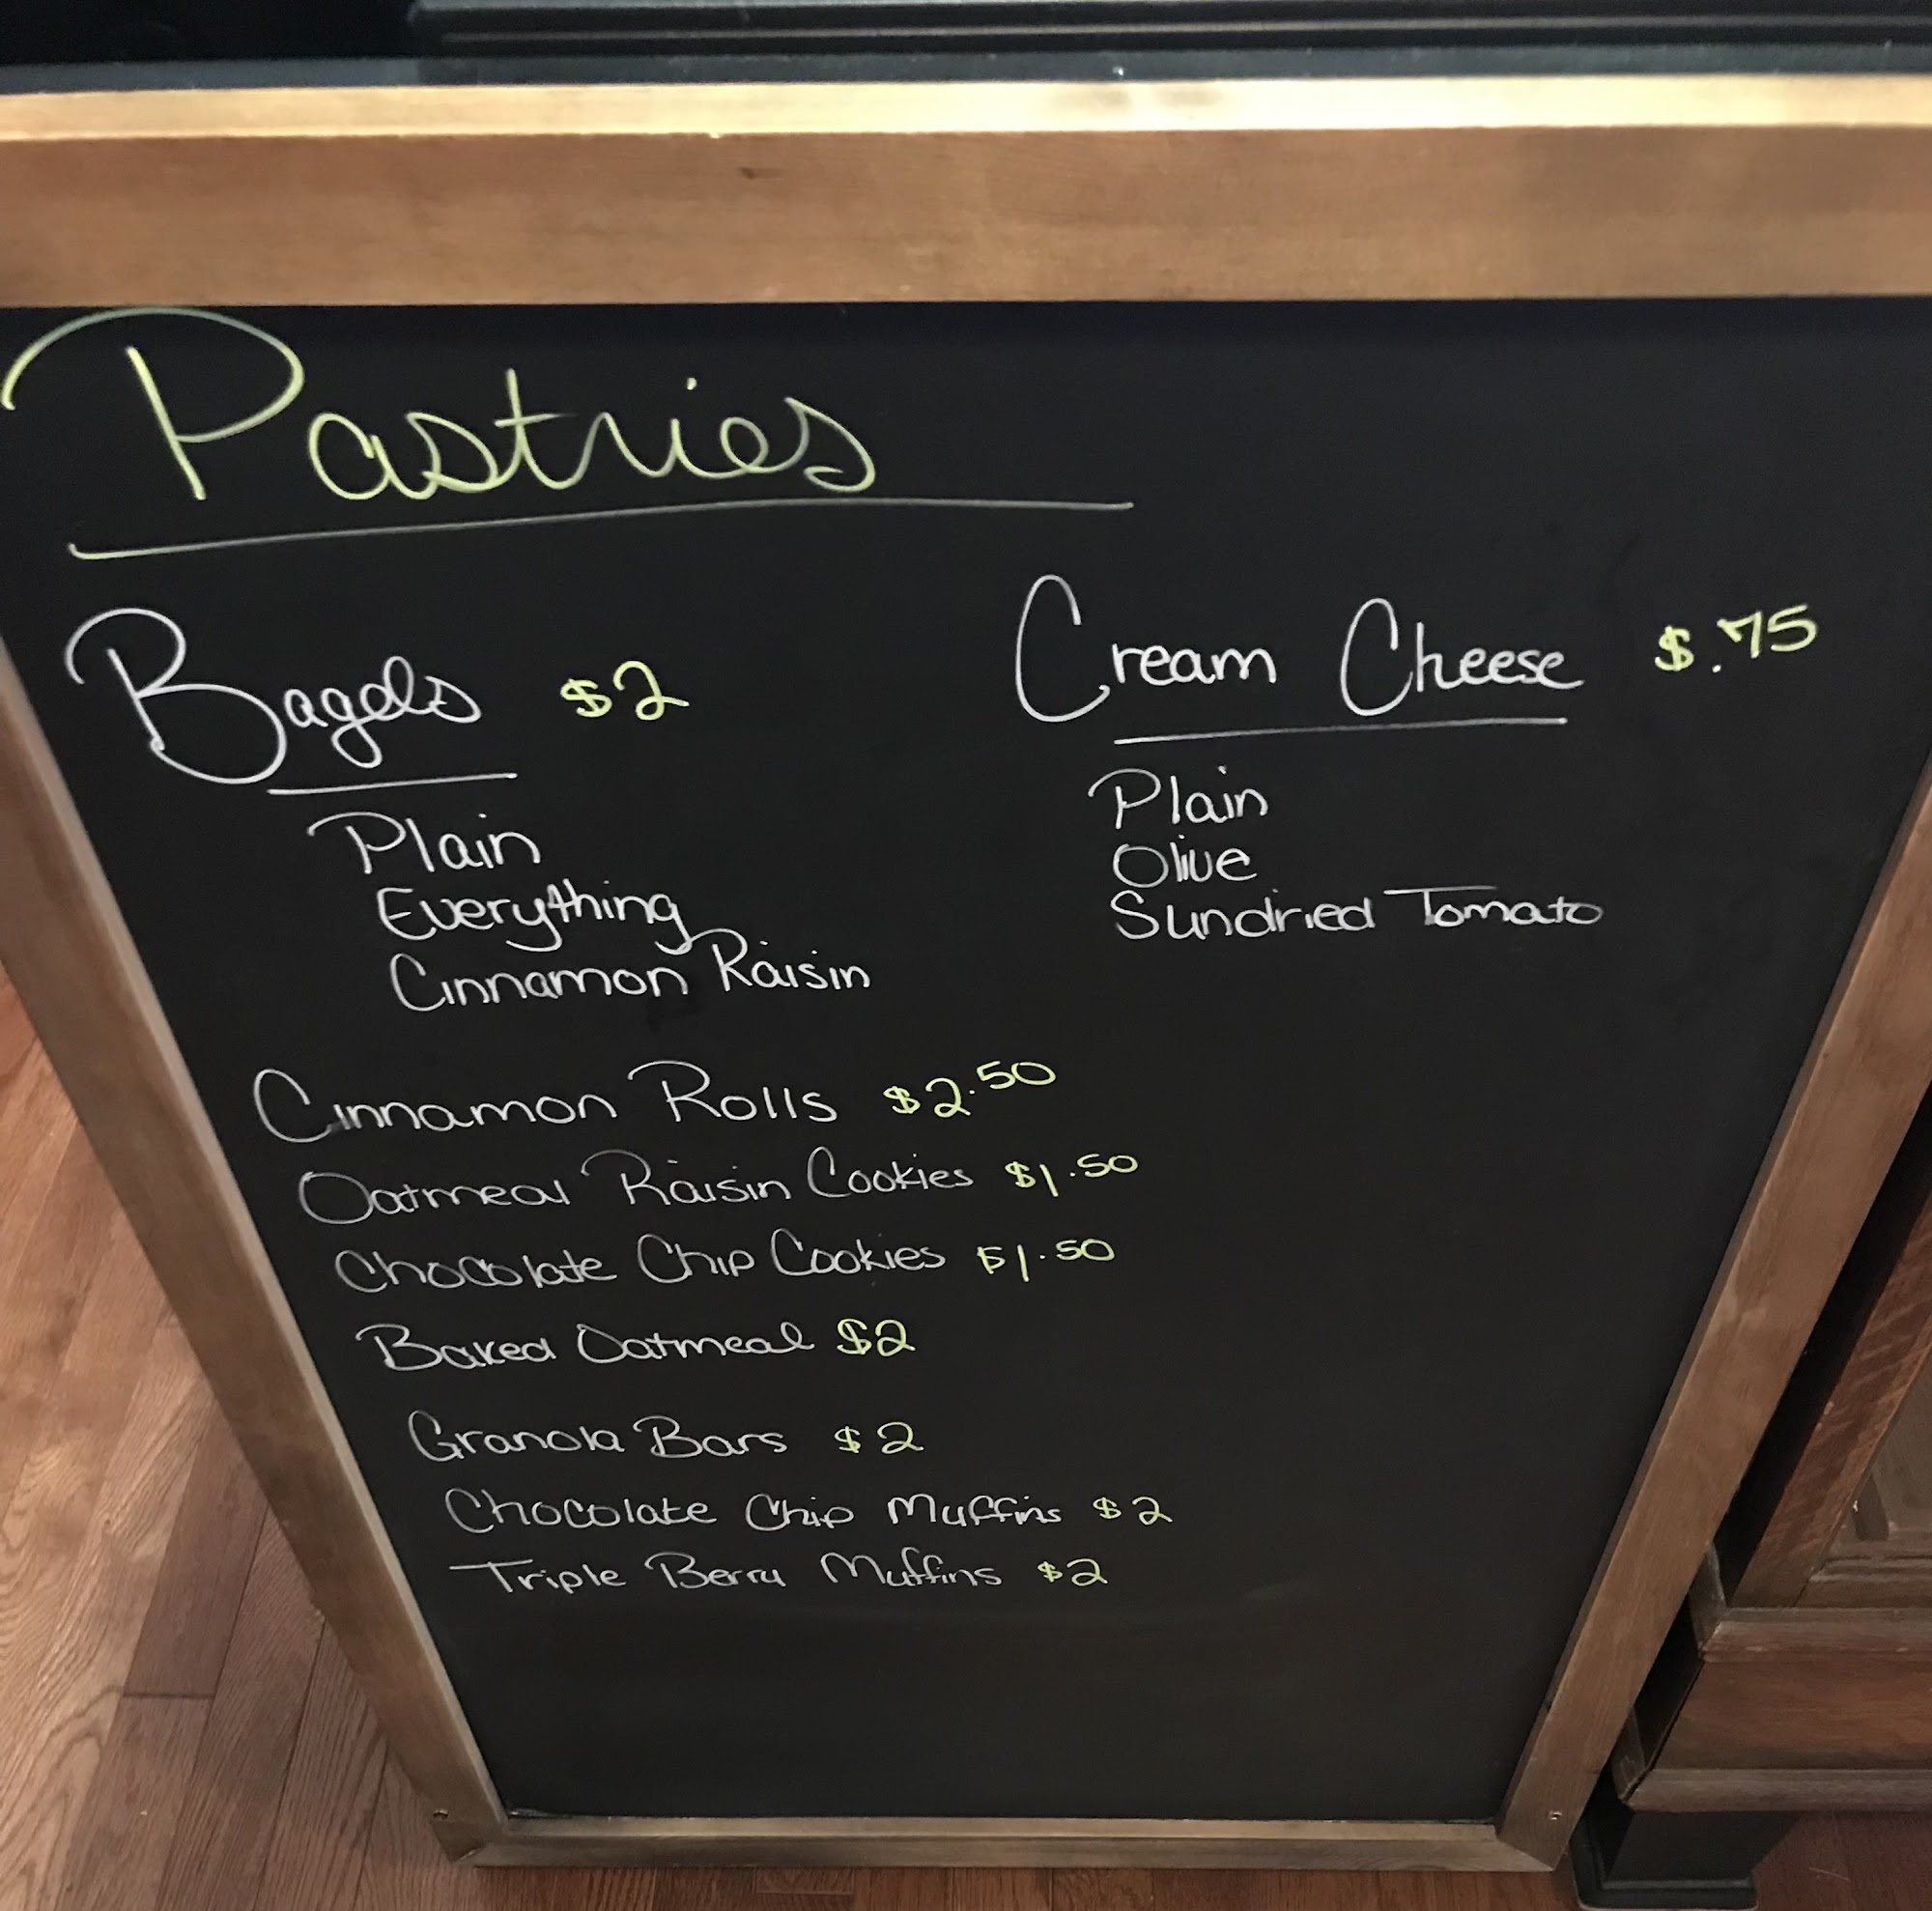 Pastries
Bagels $2
Plain
Everything
Cinnamon Raisin
Cream Cheese $.75
Plain
Olive
Sundried Tomato
Cinnamon Rolls $2.50
Oatmeal Raisin Cookies $1.50
Chocolate Chip Cookies $1.50
Baked Oatmeal $2
Granola Bars $2
Chocolate Chip Muffins $2
Triple Berry Muffins $2